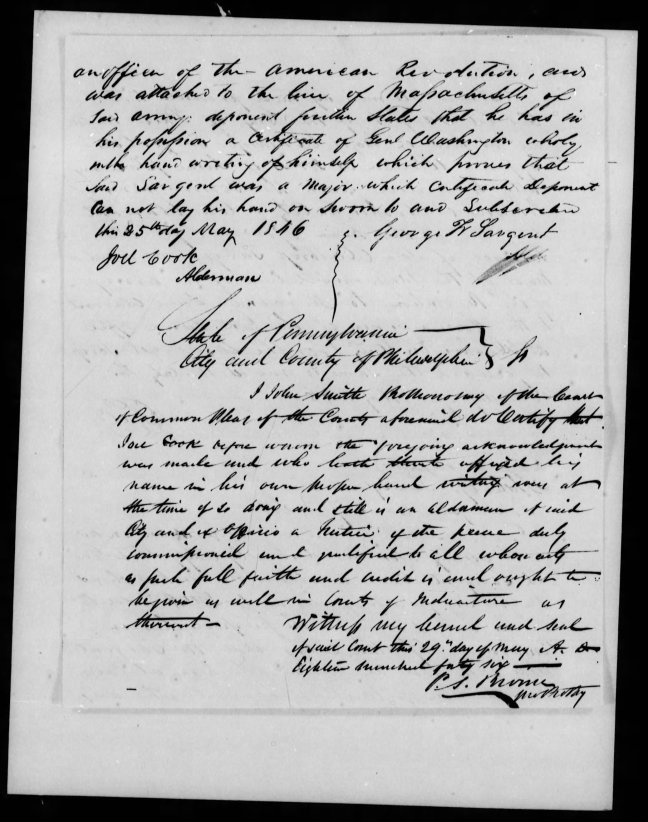 an officer of the American Revolution, and
was attached to the line of Massachusetts of
said army: deponent further States that he has in
his possession a Certificate of Genl Washington wholy
in the hand writing of himself which proves that
said Sargent was a Major which Certificate Deponent
Can not lay his hand on Sworn to and Subscribed
this 25th day May 1846 George W Sargent
Joel Cook
Alderman
State of Pennsylvania
City and County of Philadelphia } Ss
I John Smith Prothonotary of the Court
of Common Pleas of the County aforesaid do Certify that
Joel Cook before whom the foregoing acknowledgment
was made and who hath thereto affixed his
name in his own proper hand writing was at
the time of so doing and still is an alderman of said
City and ex officio a Justice of the peace duly
commissioned and qualified to all whose acts
as such full faith and credit is and ought to
be given as well in Courts of Judicature as
thereout
Witness my hand and seal
of said Court this 29th day of May A. D
Eighteen hundred forty six
Prothy